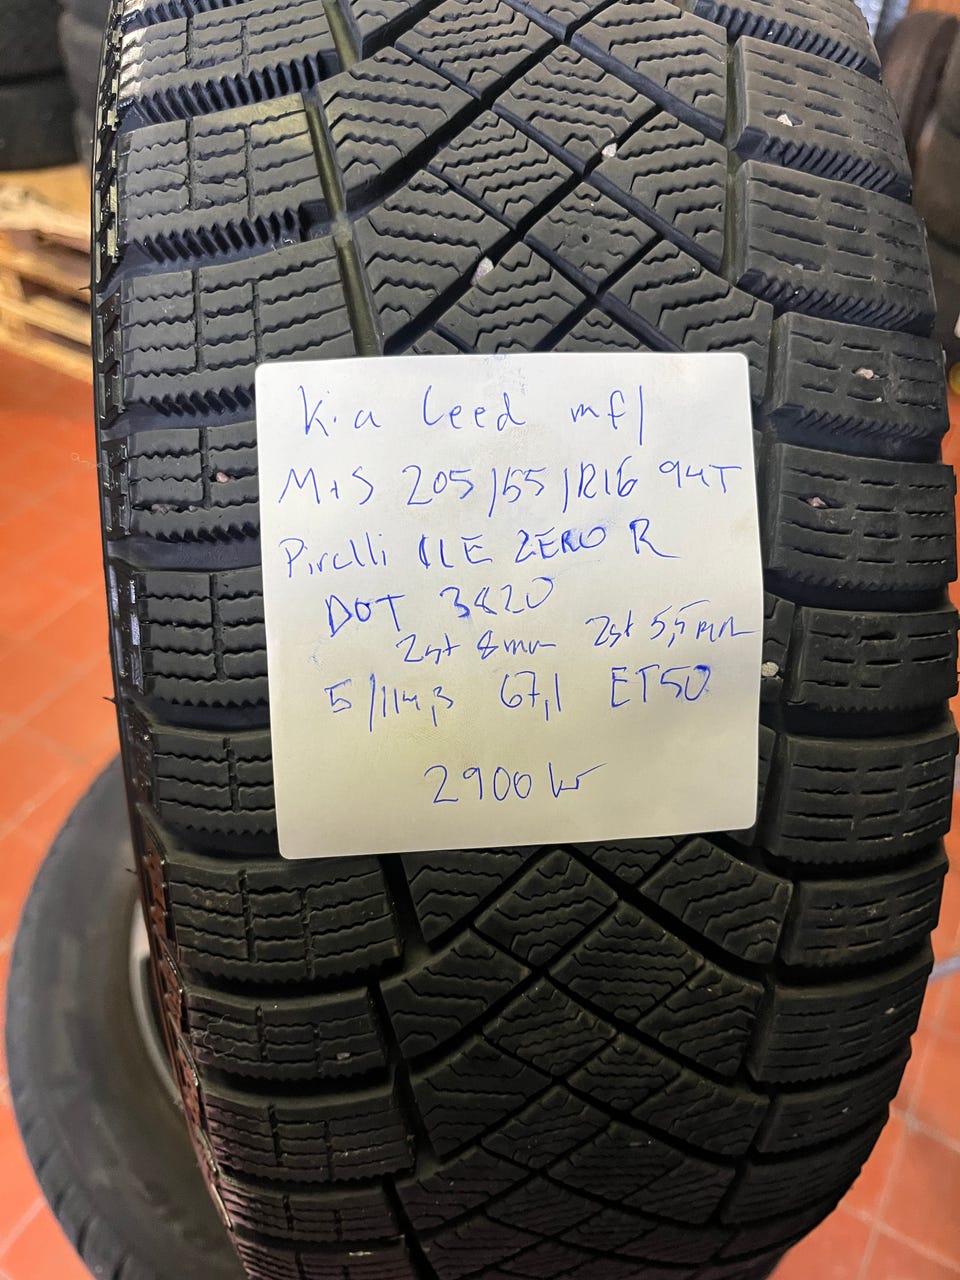 Kia Ceed mfl
M+S 205/55/R16 94T
Pirelli ICE ZERO R
DOT 3820
2st 8mm 2st 5,5mm
5/114,3 67,1 ET50
2900 kr